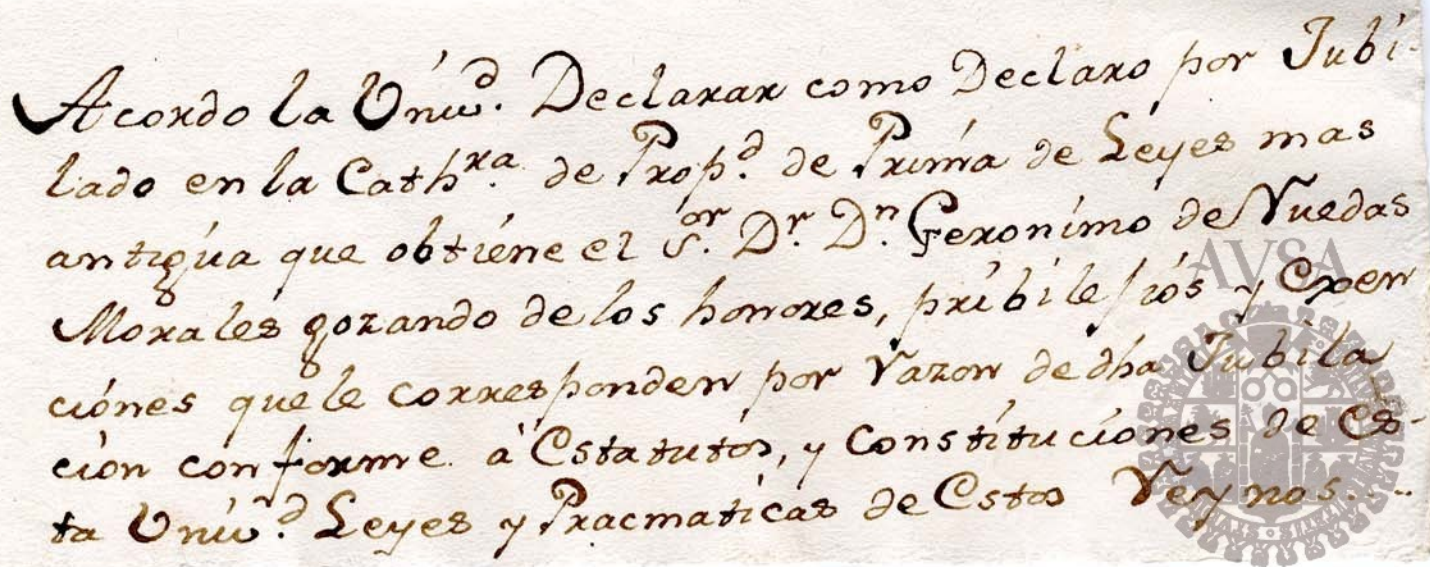 Acordo la Univ.d Declarar como Declaro por Jubi-
lado en la Cath.ra de Prop.d de Prima de Leyes mas
antigua que obtiene el S.or D.r D.n Geronimo de Ruedas
Morales gozando de los honores, pribilejios y Exen
ciones que le corresponden por Razon de dha Jubila
cion conforme à Estatutos, y Constituciones de Es-
ta Univ.d Leyes y Pracmaticas de Estos Reynos....
AVSA